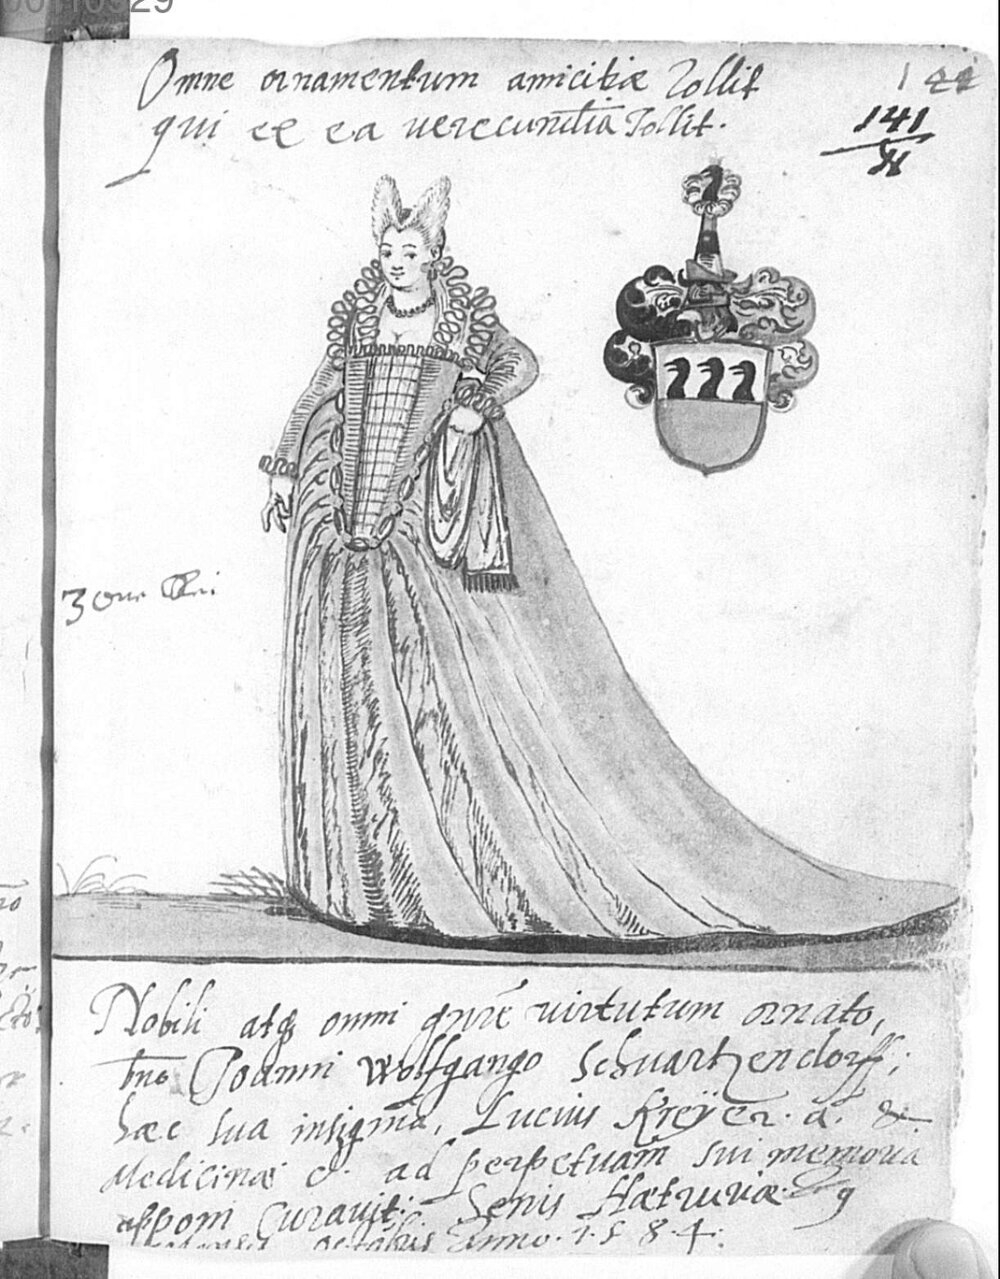 Omne ornamentum amicitiæ Tollit
qui ex ea verecundia Tollit.
141
Nobili atq3 omni genere virtutum ornato,
Dno Joanni Wolfgango Schuartzendorff;
hæc sua insignia, Lucius Kreÿer. a. &
Medicinæ C. ad perpetuam sui memoria
apponi Curavit. Senis Hætruriæ. 9
octobris Anno. 1584.